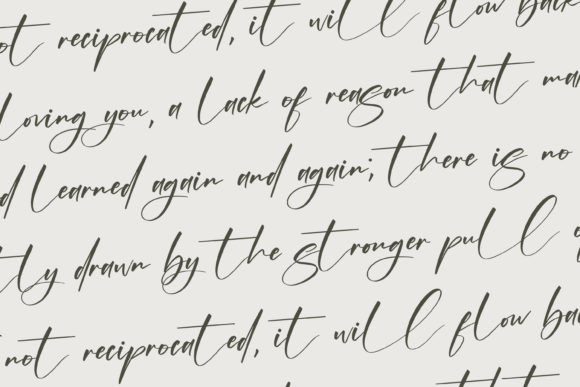 not reciprocated, it will flow back
loving you, a lack of reason that
learned again and again; there is no
drawn by the stronger pull
not reciprocated, it will flow
that